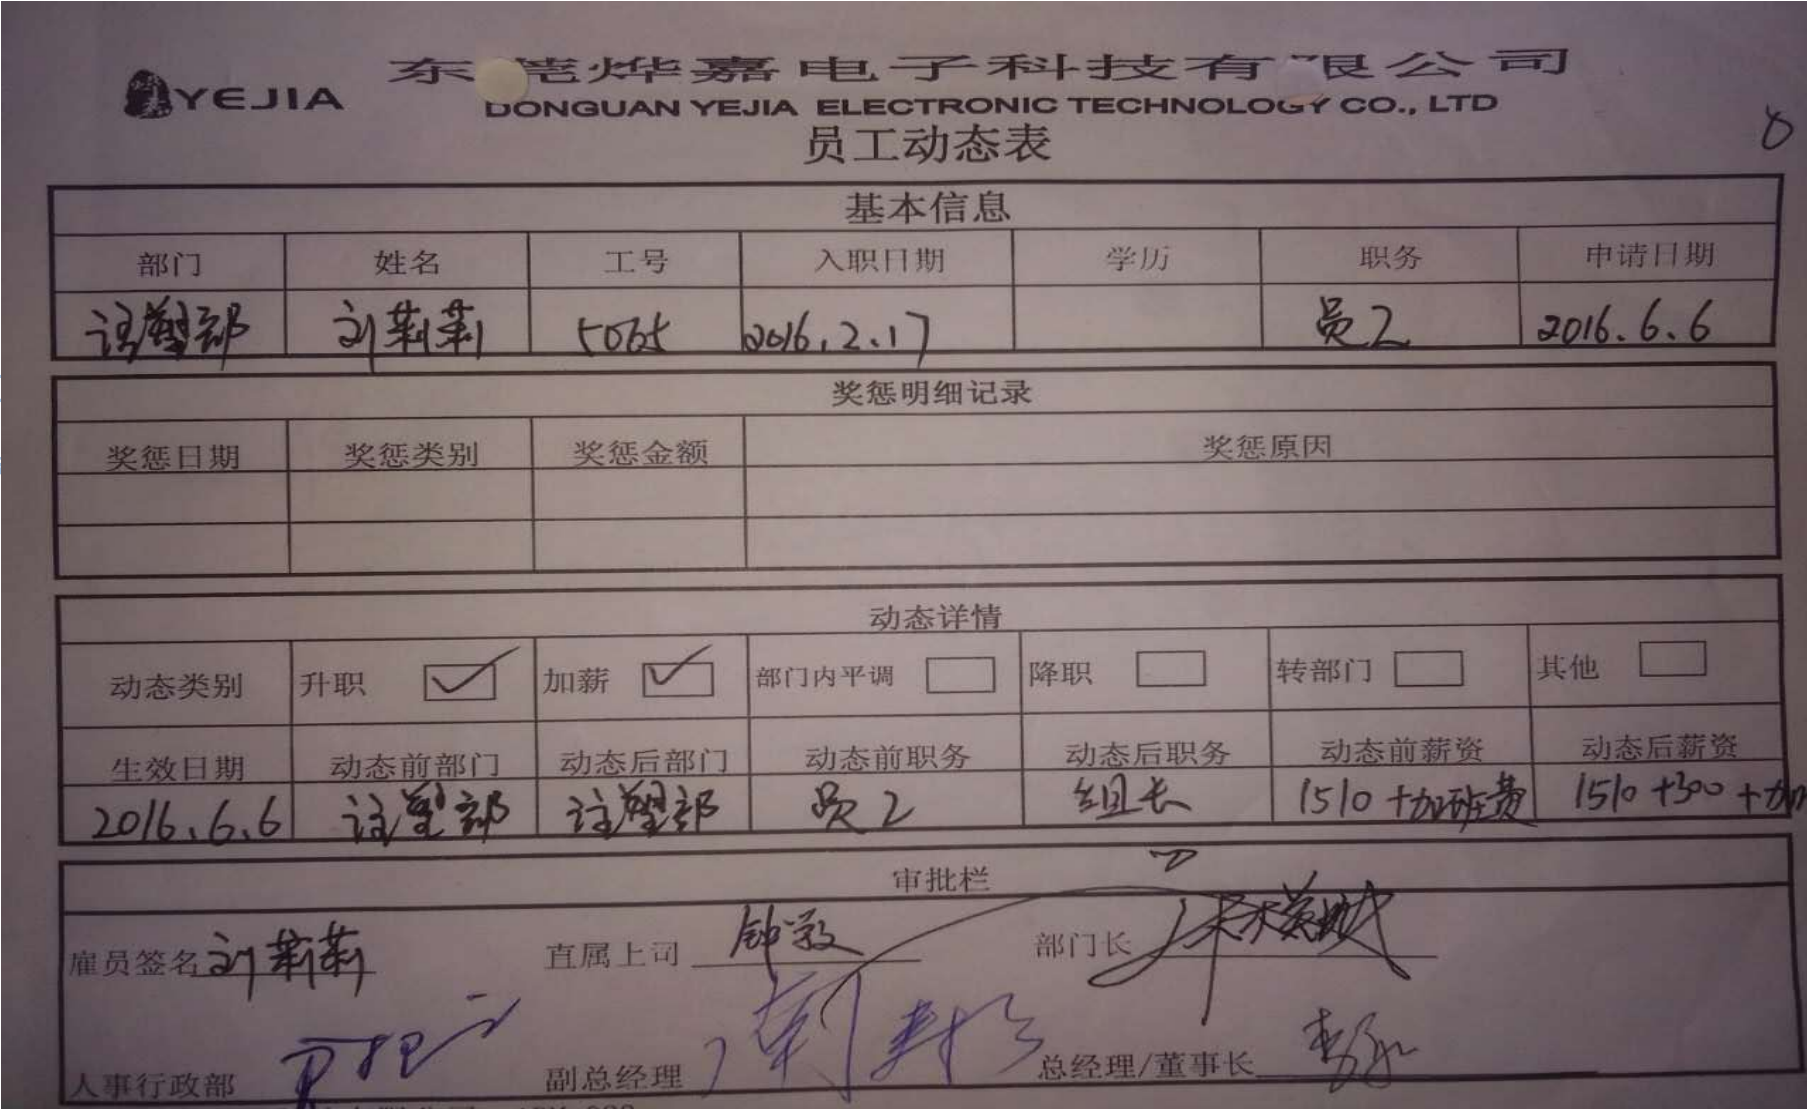 YEJIA
东莞烨嘉电子科技有限公司
DONGUAN YEJIA ELECTRONIC TECHNOLOGY CO., LTD
员工动态表
8
基本信息
部门 姓名 工号 入职日期 学历 职务 申请日期
注塑部 刘莉莉 5065 2016.2.17 员工 2016.6.6
奖惩明细记录
奖惩日期 奖惩类别 奖惩金额 奖惩原因
动态详情
动态类别 升职 加薪 部门内平调 降职 转部门 其他
生效日期 动态前部门 动态后部门 动态前职务 动态后职务 动态前薪资 动态后薪资
2016.6.6 注塑部 注塑部 员工 组长 1510+加班费 1510+300+加
审批栏
雇员签名 刘莉莉 直属上司 部门长
人事行政部 副总经理 总经理/董事长